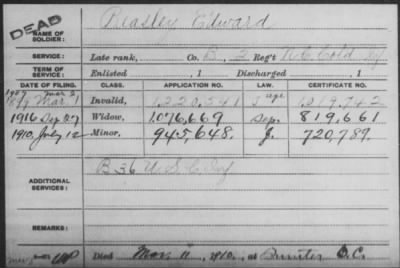 DEAD
NAME OF SOLDIER: Beasley Edward
SERVICE: Late rank, Co. B, 2 Reg't N.C. Cold Inf
TERM OF SERVICE: Enlisted , 1 Discharged , 1
DATE OF FILING. CLASS. APPLICATION NO. LAW. CERTIFICATE NO.
1907 Mar 2
Mar 1 Invalid, 1,220,341 1,019,742
1916 Sep 27 Widow, 1,076,669 Sep. 819,661
1910, July 12 Minor. 945,648. J. 720,789.
ADDITIONAL SERVICES: B 36 U.S.C. Inf
REMARKS:
Died Mar. 11, 1910, at Sumter S.C.